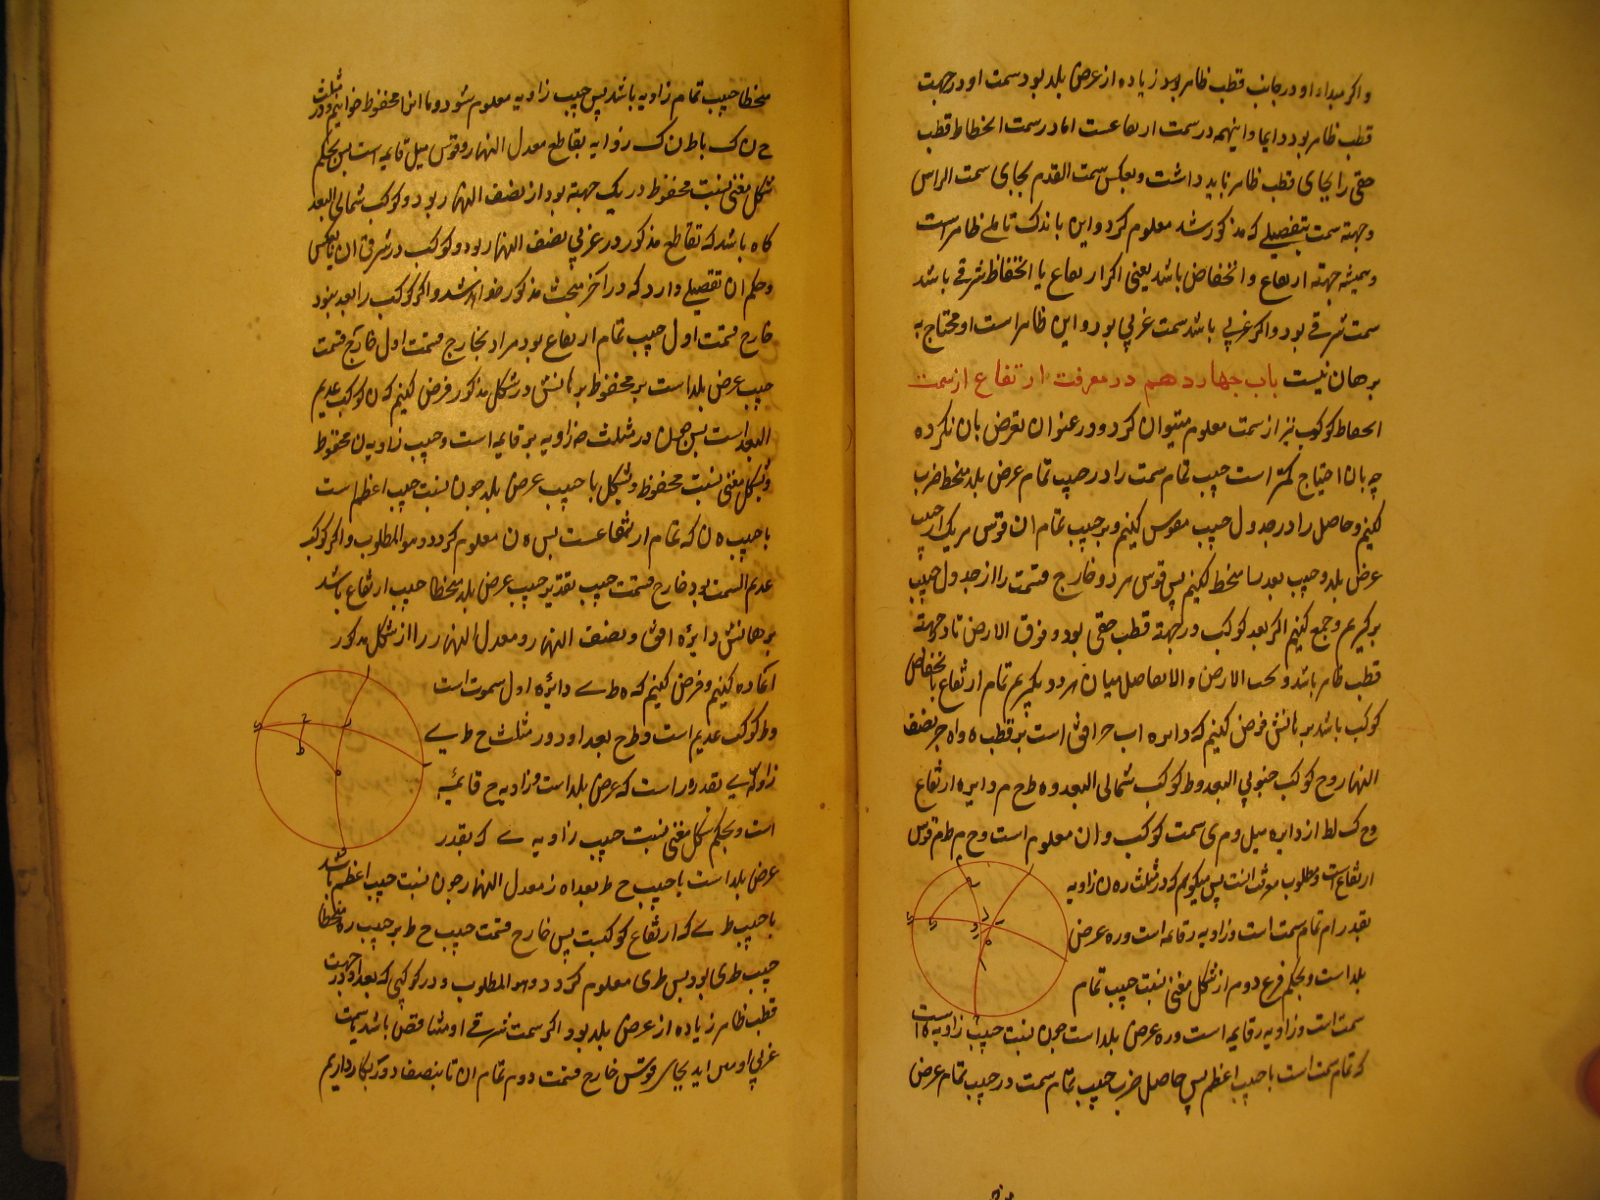 و اکر مبداء او در جانب قطب ظاهر بود زیاده از عرض بلد بود سمت او در جهت
قطب ظاهر بود دایما و اینهمه در سمت ارتفاعست اما در سمت انحطاط قطب
خفی را بجای قطب ظاهر باید داشت و بعکس سمت القدم بجای سمت الراس
و جهته سمت بتفصیلی که مذکور شد معلوم کرد و این باندک تاملی ظاهر است
و همیشه جهته ارتفاع و انخفاض باشد یعنی اکر ارتفاع یا انخفاظ شرقی باشد
سمت شرقی بود و اکر غربی باشد سمت غربی بود و این ظاهر است و محتاج به
برهان نیست باب چهاردهم در معرفت ارتفاع از سمت
انحطاط کوکب نیز از سمت معلوم میتوان کرد و در عنوان تعرض بان نکرده
چه بان احتیاج کمتر است جیب تمام سمت را در جیب تمام عرض بلد منحط ضرب
کنیم و حاصل را در جدول جیب مقوس کنیم و بر جیب تمام ان قوس هر یک از جیب
عرض بلد و جیب بعد را منحط کنیم پس قوس هر دو خارج قسمت را از جدول جیب
برکیریم و جمع کنیم اکر بعد کوکب در جهته قطب خفی بود و فوق الارض تا در جهته
قطب ظاهر باشد و تحت الارض و الا تفاضل میان هر دو بکیریم تمام ارتفاع یا انخفاض
کوکب باشد برهانش فرض کنیم که دایره اب ح افق است بر قطب ه و اه ج نصف
النهار و ح کوکب جنوبی البعد و ط کوکب شمالی البعد و ه ط ح م دایره ارتفاع
و ح ک لط از دایره میل و م ی سمت کوکب و ان معلوم است و ح م ط م قوس
ارتفاع است و مطلوب موقت انست پس میکوییم که در مثلث ره ن زاویه
بقدر ام تمام سمت است و زاویه ر قائمه است و ره عرض
بلد است و بحکم فرع دوم از شکل مغنی نسبت جیب تمام
سمت است و زاویه ر قایمه است و ره عرض بلد است چون نسبت جیب زاویه ه است
که تمام سمت است با جیب اعظم پس حاصل ضرب جیب تمام سمت در جیب تمام عرض
منحطا جیب تمام زاویه باشد پس جیب زاویه معلوم شود و ما انرا محفوظ خوانیم و در مثلث
ح ن ک باط ن ک زوایه تقاطع معدل النهار و قوس میل قایمه است پس بحکم
شکل مغنی نسبت محفوظ در یک جهته بود از نصف النهار بود و کوکب شمالی البعد
کاه باشد که تقاطع مذکور در غربی نصف النهار بود و کوکب در شرقی ان یا بعکس
و حکم ان تفصیلی دارد که در اخر مبحث مذکور خواهد شد و اکر کوکب را بعد نبود
خارج قسمت اول جیب تمام ارتفاع بود مراد بخارج قسمت اول خارج قسمت
جیب عرض بلد است بر محفوظ برهانش در شکل مذکور فرض کنیم که ن کوکب عدیم
البعد است پس در مثلث زاویه بر قایمه است و جیب زاویه ن محفوظ
و بشکل مغنی نسبت محفوظ با جیب عرض بلد چون نسبت جیب اعظم است
با جیب ه ن که تمام ارتفاعست پس ه ن معلوم کردد و هو المطلوب و اکر کوکب
عدیم السمت بود خارج قسمت جیب بقدر جیب عرض بلد منحطا جیب ارتفاع باشد
برهانش دایره افق و نصف النهار و معدل النهار را از شکل مذکور
اعاده کنیم و فرض کنیم که ه ط ی دایره اول سموت است
و ط کوکب عدیم است و ط ح بعد او در مثلث ح ط ی
زاویه ی بقدر ه ر است که عرض بلد است و زاویه ح قائمه
است و بحکم شکل مغنی نسبت جیب زاویه ی که بقدر
عرض بلد است با جیب ح ط بعد او از معدل النهار چون نسبت جیب اعظم باشد
با جیب ط ی که ارتفاع کوکبست پس خارج قسمت جیب ح ط بر جیب ره منحطا
جیب ط ی بود پس ط ی معلوم کردد و هو المطلوب و در کوکبی که بعد او در جهت
قطب ظاهر زیاده از عرض بلد بود اکر سمت شرقی او متناقص باشد یا سمت
غربی او بجای قوس خارج قسمت دوم تمام ان تا بنصف دور بکار داریم